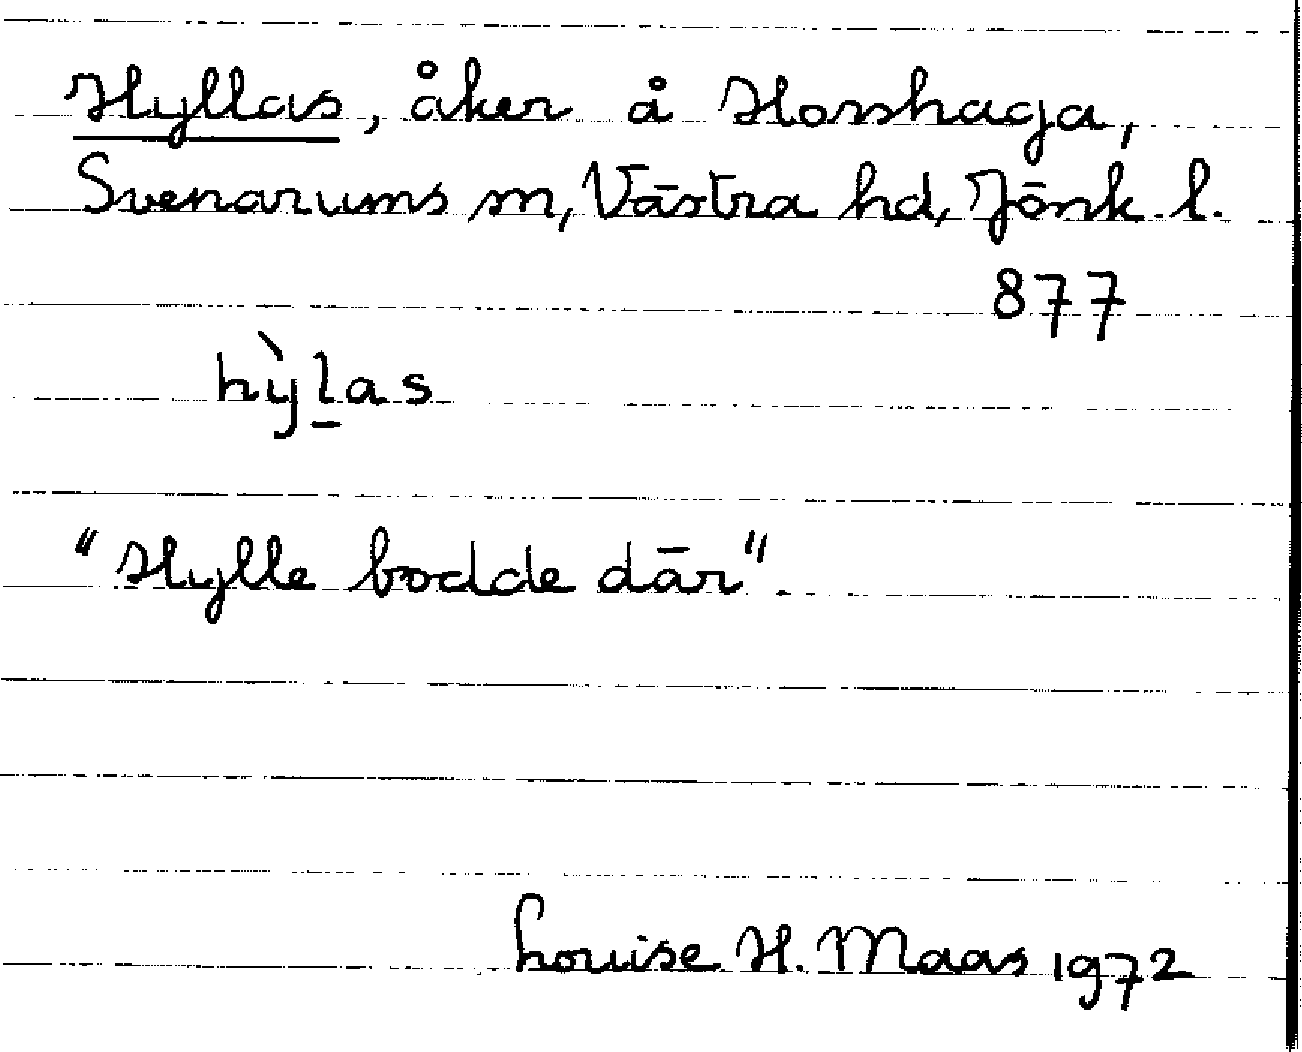 Hyllas, åker å Horshaga,
Svenarums sn, Västra hd, Jönk. l.
877
hỳl̲as
"Hylle bodde där".
Louise H. Maas 1972